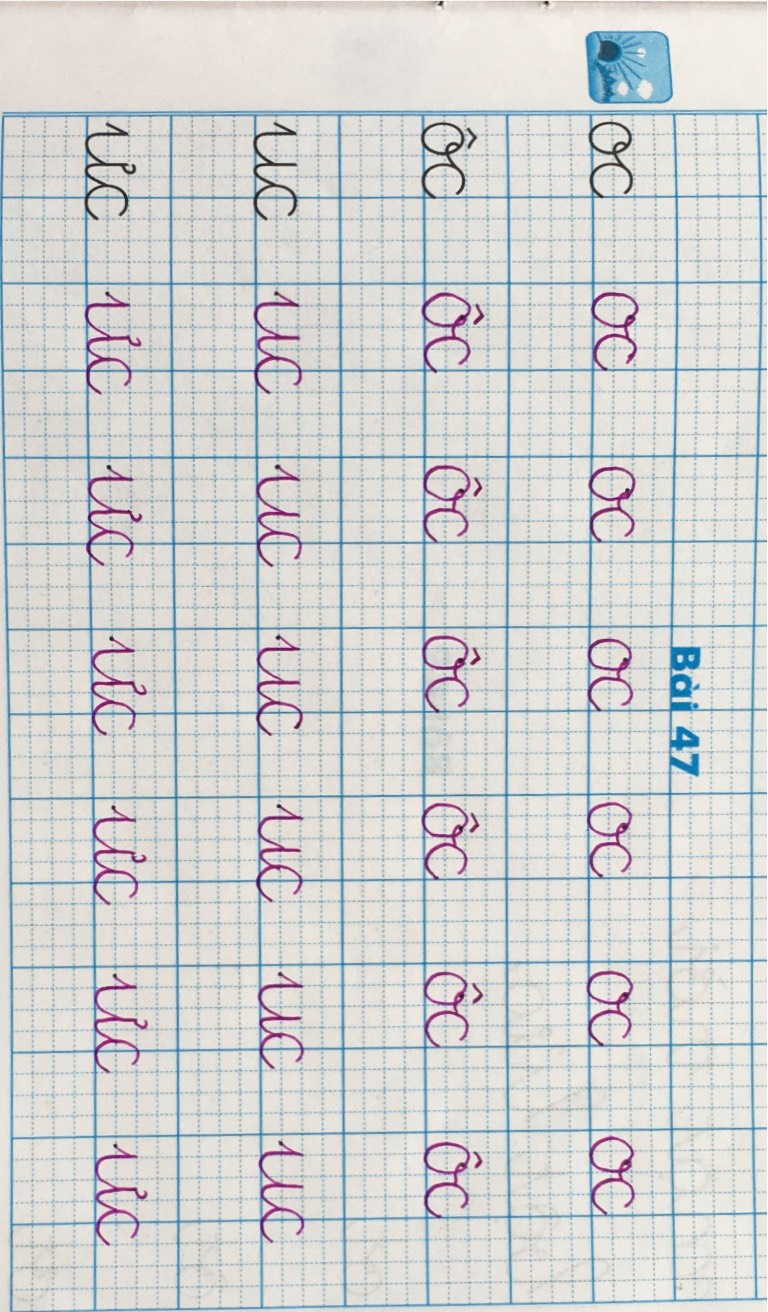 Bài 47
oc oc oc oc oc oc oc
ôc ôc ôc ôc ôc ôc ôc
uc uc uc uc uc uc uc
ưc ưc ưc ưc ưc ưc ưc